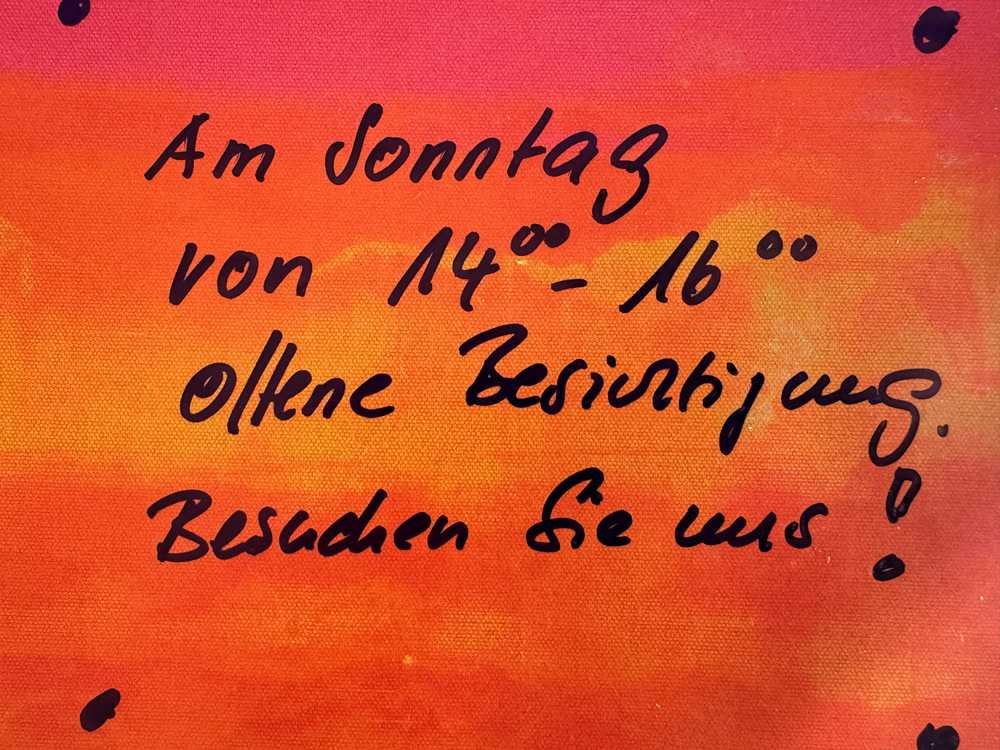 Am Sonntag
von 14⁰⁰ - 16⁰⁰
offene Besichtigung.
Besuchen Sie uns!